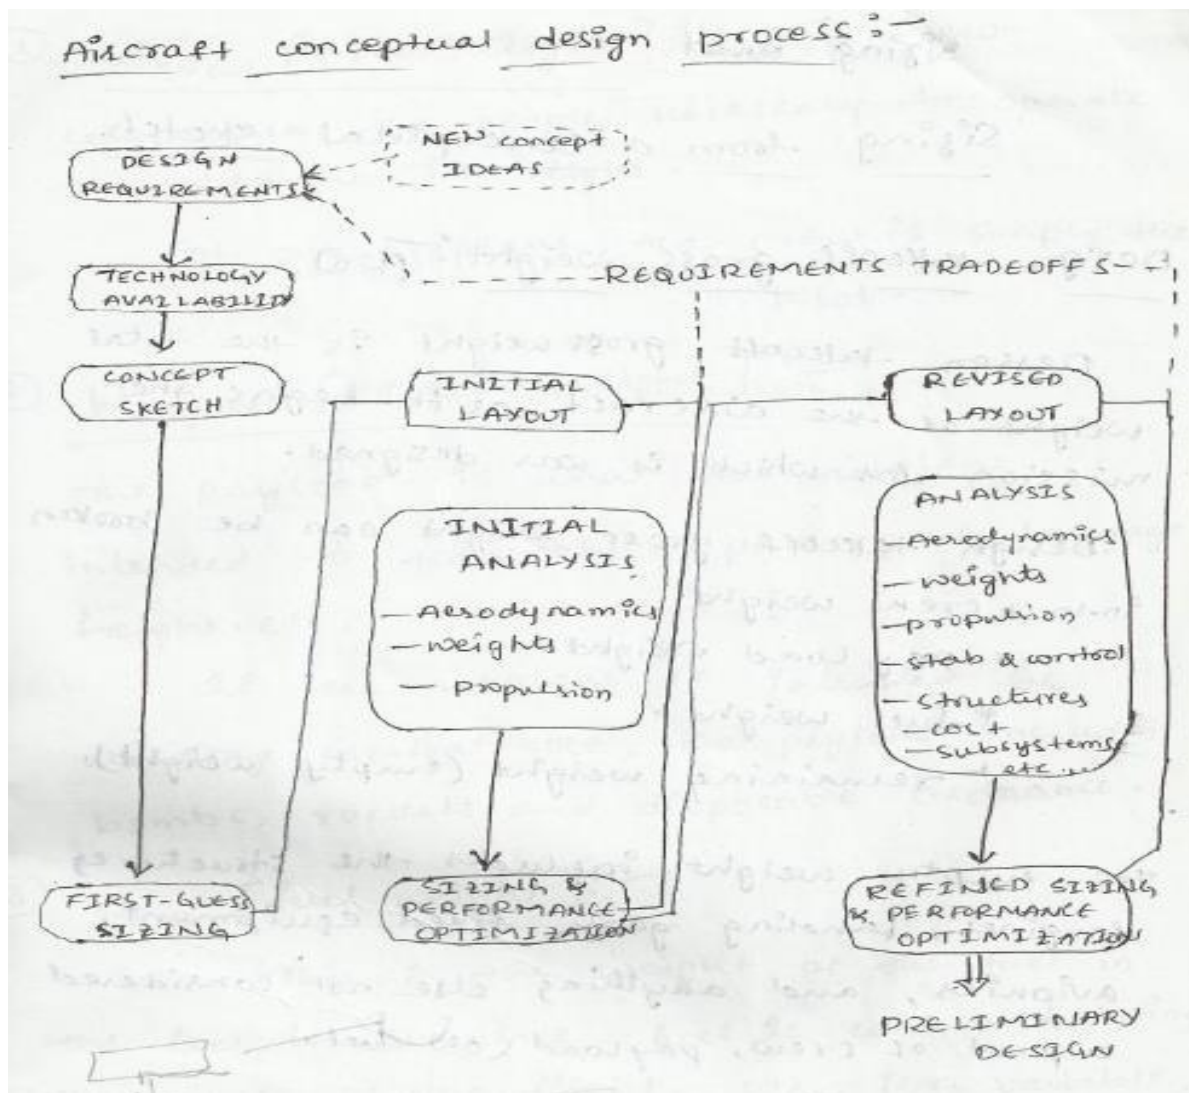 Aircraft conceptual design process:-
NEW concept
IDEAS
DESIGN
REQUIREMENTS
REQUIREMENTS TRADEOFFS
TECHNOLOGY
AVAILABILITY
CONCEPT
SKETCH
INITIAL
LAYOUT
REVISED
LAYOUT
INITIAL
ANALYSIS
- Aerodynamics
- weights
- propulsion
ANALYSIS
- Aerodynamics
- weights
- propulsion
- stab & control
- structures
- cost
- subsystems
etc....
FIRST-GUESS
SIZING
SIZING &
PERFORMANCE
OPTIMIZATION
REFINED SIZING
& PERFORMANCE
OPTIMIZATION
PRELIMINARY
DESIGN